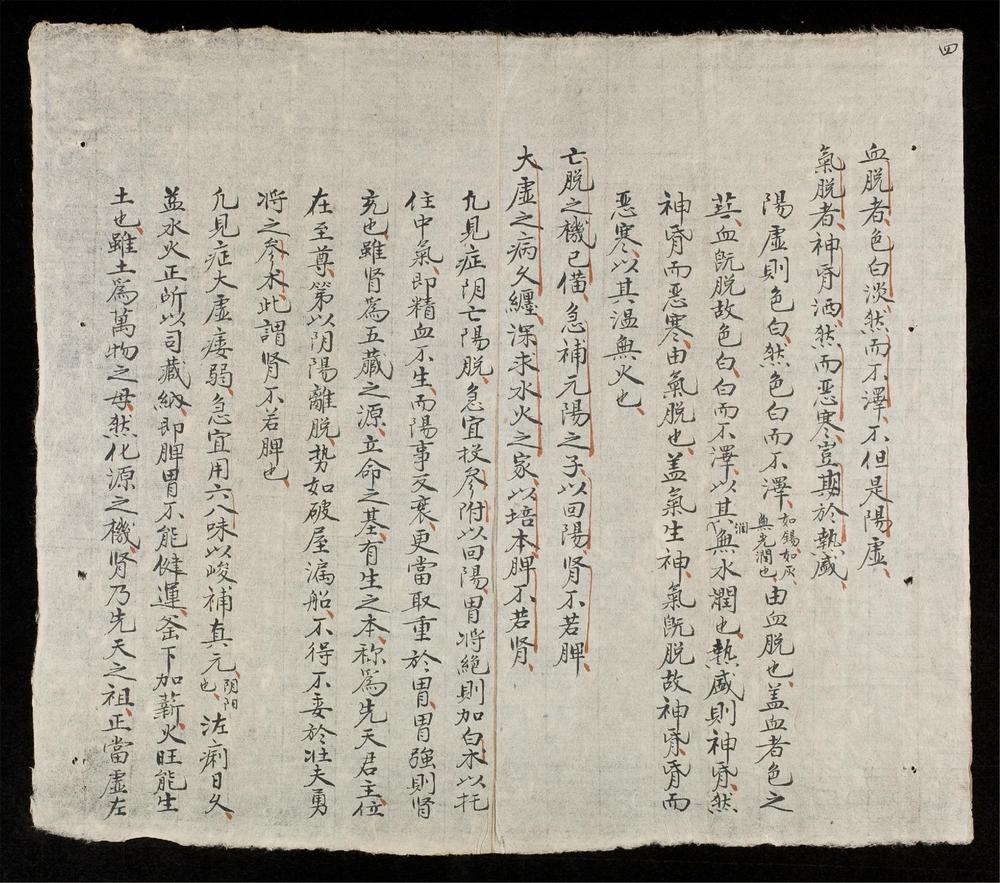 四
血脱者色白淡然而不澤不但是陽虚
氣脱者神昏洒然而恶寒豈期於熱盛
陽虚則色白然色白而不澤如錫如灰無光潤也由血脱也盖血者色之
華血旣脱故色白白而不澤以其無水潤也熱盛則神昏然
潤
神昏而恶寒由氣脱也盖氣生神氣旣脱故神昏昏而
恶寒以其温無火也
亡脱之機已備急補元陽之子以回陽肾不若脾
大虚之病久纏深求水火之家以培本脾不若肾
凢見症阴亡陽脱急宜投參附以回陽胃将絶則加白朮以托
住中氣即精血不生而陽事又衰更當取重於胃胃強則肾
充也雖肾爲五藏之源立命之基有生之本称爲先天君主位
在至尊第以阴陽離脱势如破屋漏船不得不委於壮夫勇
将之參朮此謂肾不若脾也
凢見症大虚痿弱急宜用六八味以峻補真元阴阳也 泄痢日久
益水火正所以司藏納即脾胃不能健運釜下加薪火旺能生
土也雖土爲萬物之母然化源之機肾乃先天之祖正當虚左